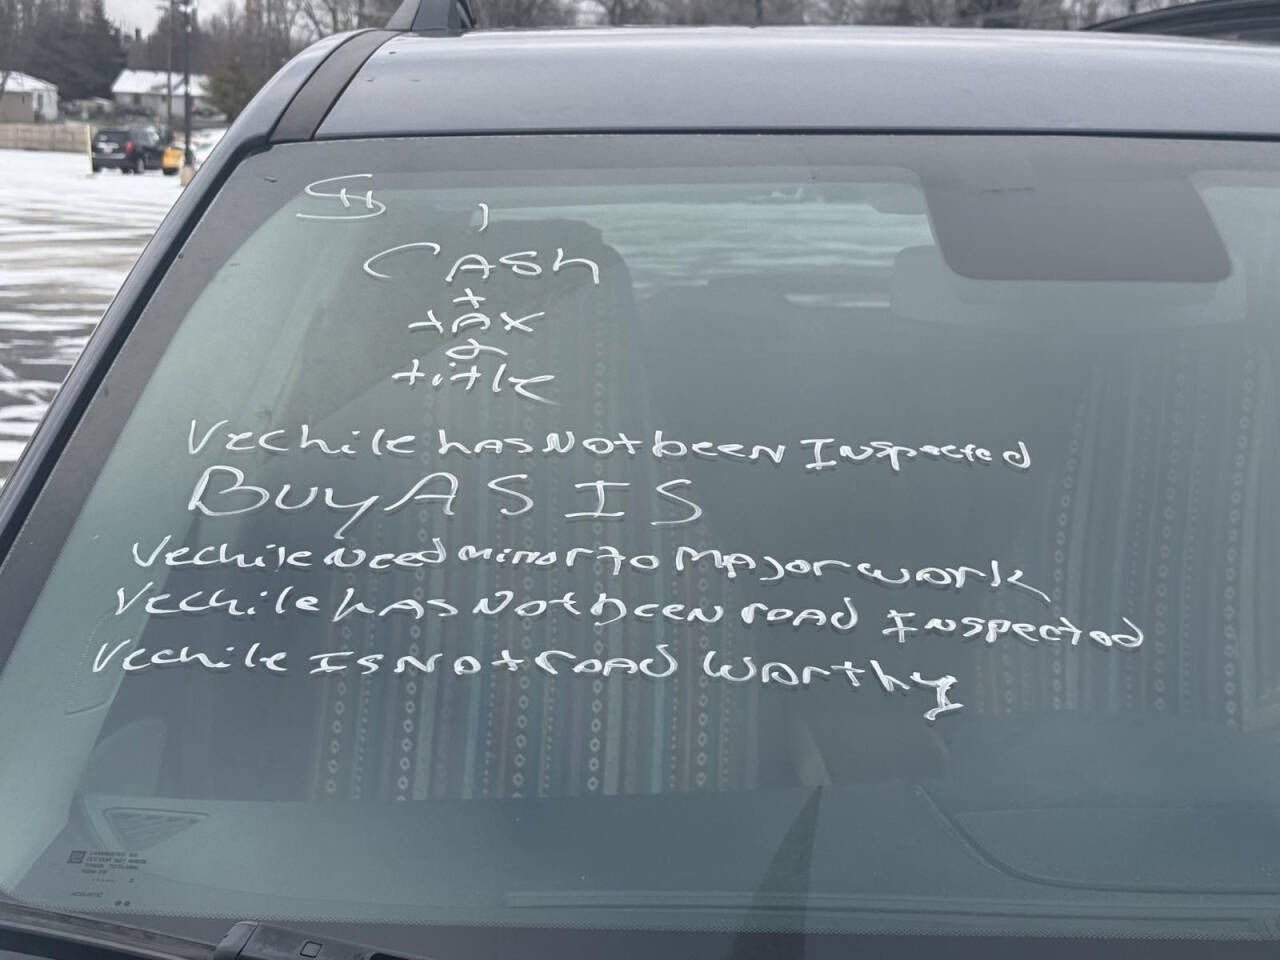 CASh
+
tAx
&
title
Vechile hAs Not been Inspected
Buy AS IS
Vechile Need minor to MAJor work
Vechile hAs Not been roAD Inspected
Vechile Is Not roAD Worthy
ACOUSTIC